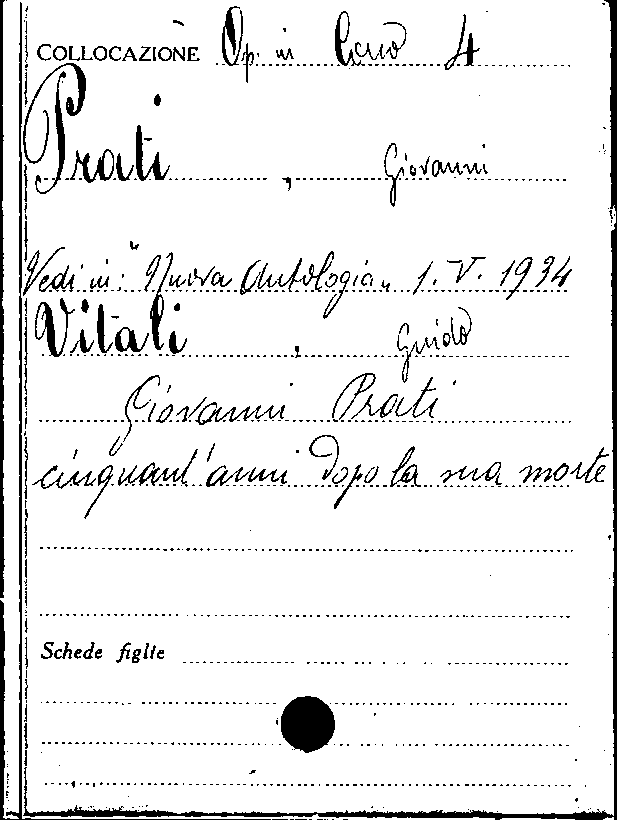 COLLOCAZIONE Op. in Corso 4
Prati, Giovanni
Vedi in: "Nuova Antologia„ 1. V. 1934
Vitali, Guido
Giovanni Prati
cinquant'anni dopo la sua morte
Schede figlie